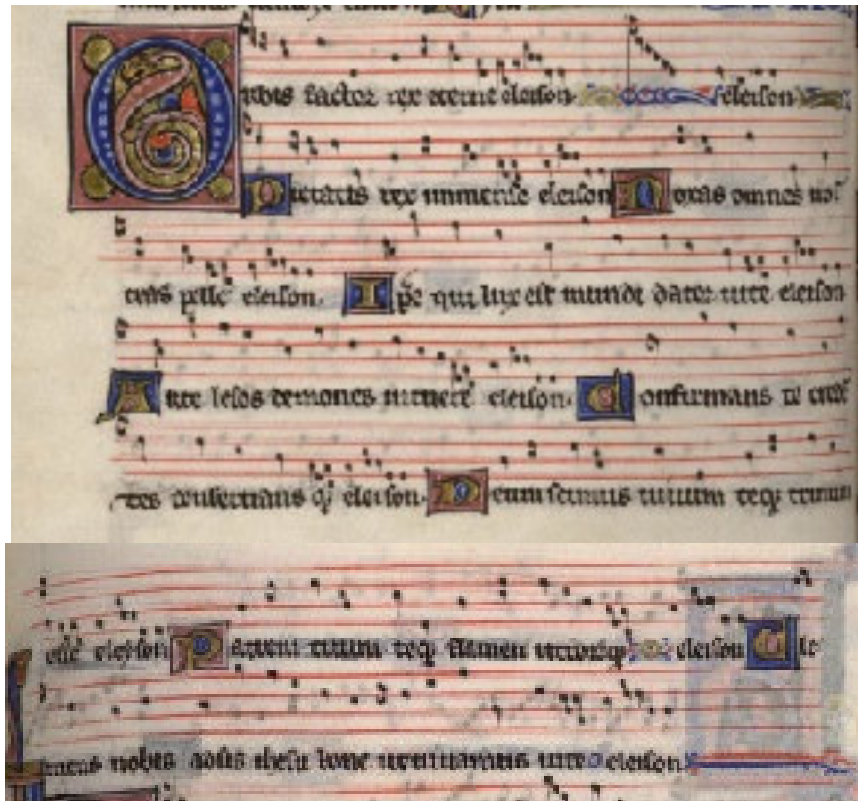 Orbis factor rex eterne eleison eleison
Pietatis rex immense eleison Noxas omnes nos
tras pelle eleison. Xpe qui lux est mundi dator vite eleison
Arte lesos demonis intuere eleison. Confirmans te creden
tes conservans q̄ eleison. Deum scimus unum teq; trinum
esse eleison Patrem tuum teq; flamen utrorūq; eleison Cle
mens nobis adsis ihesu bone ut vivamus in te eleison